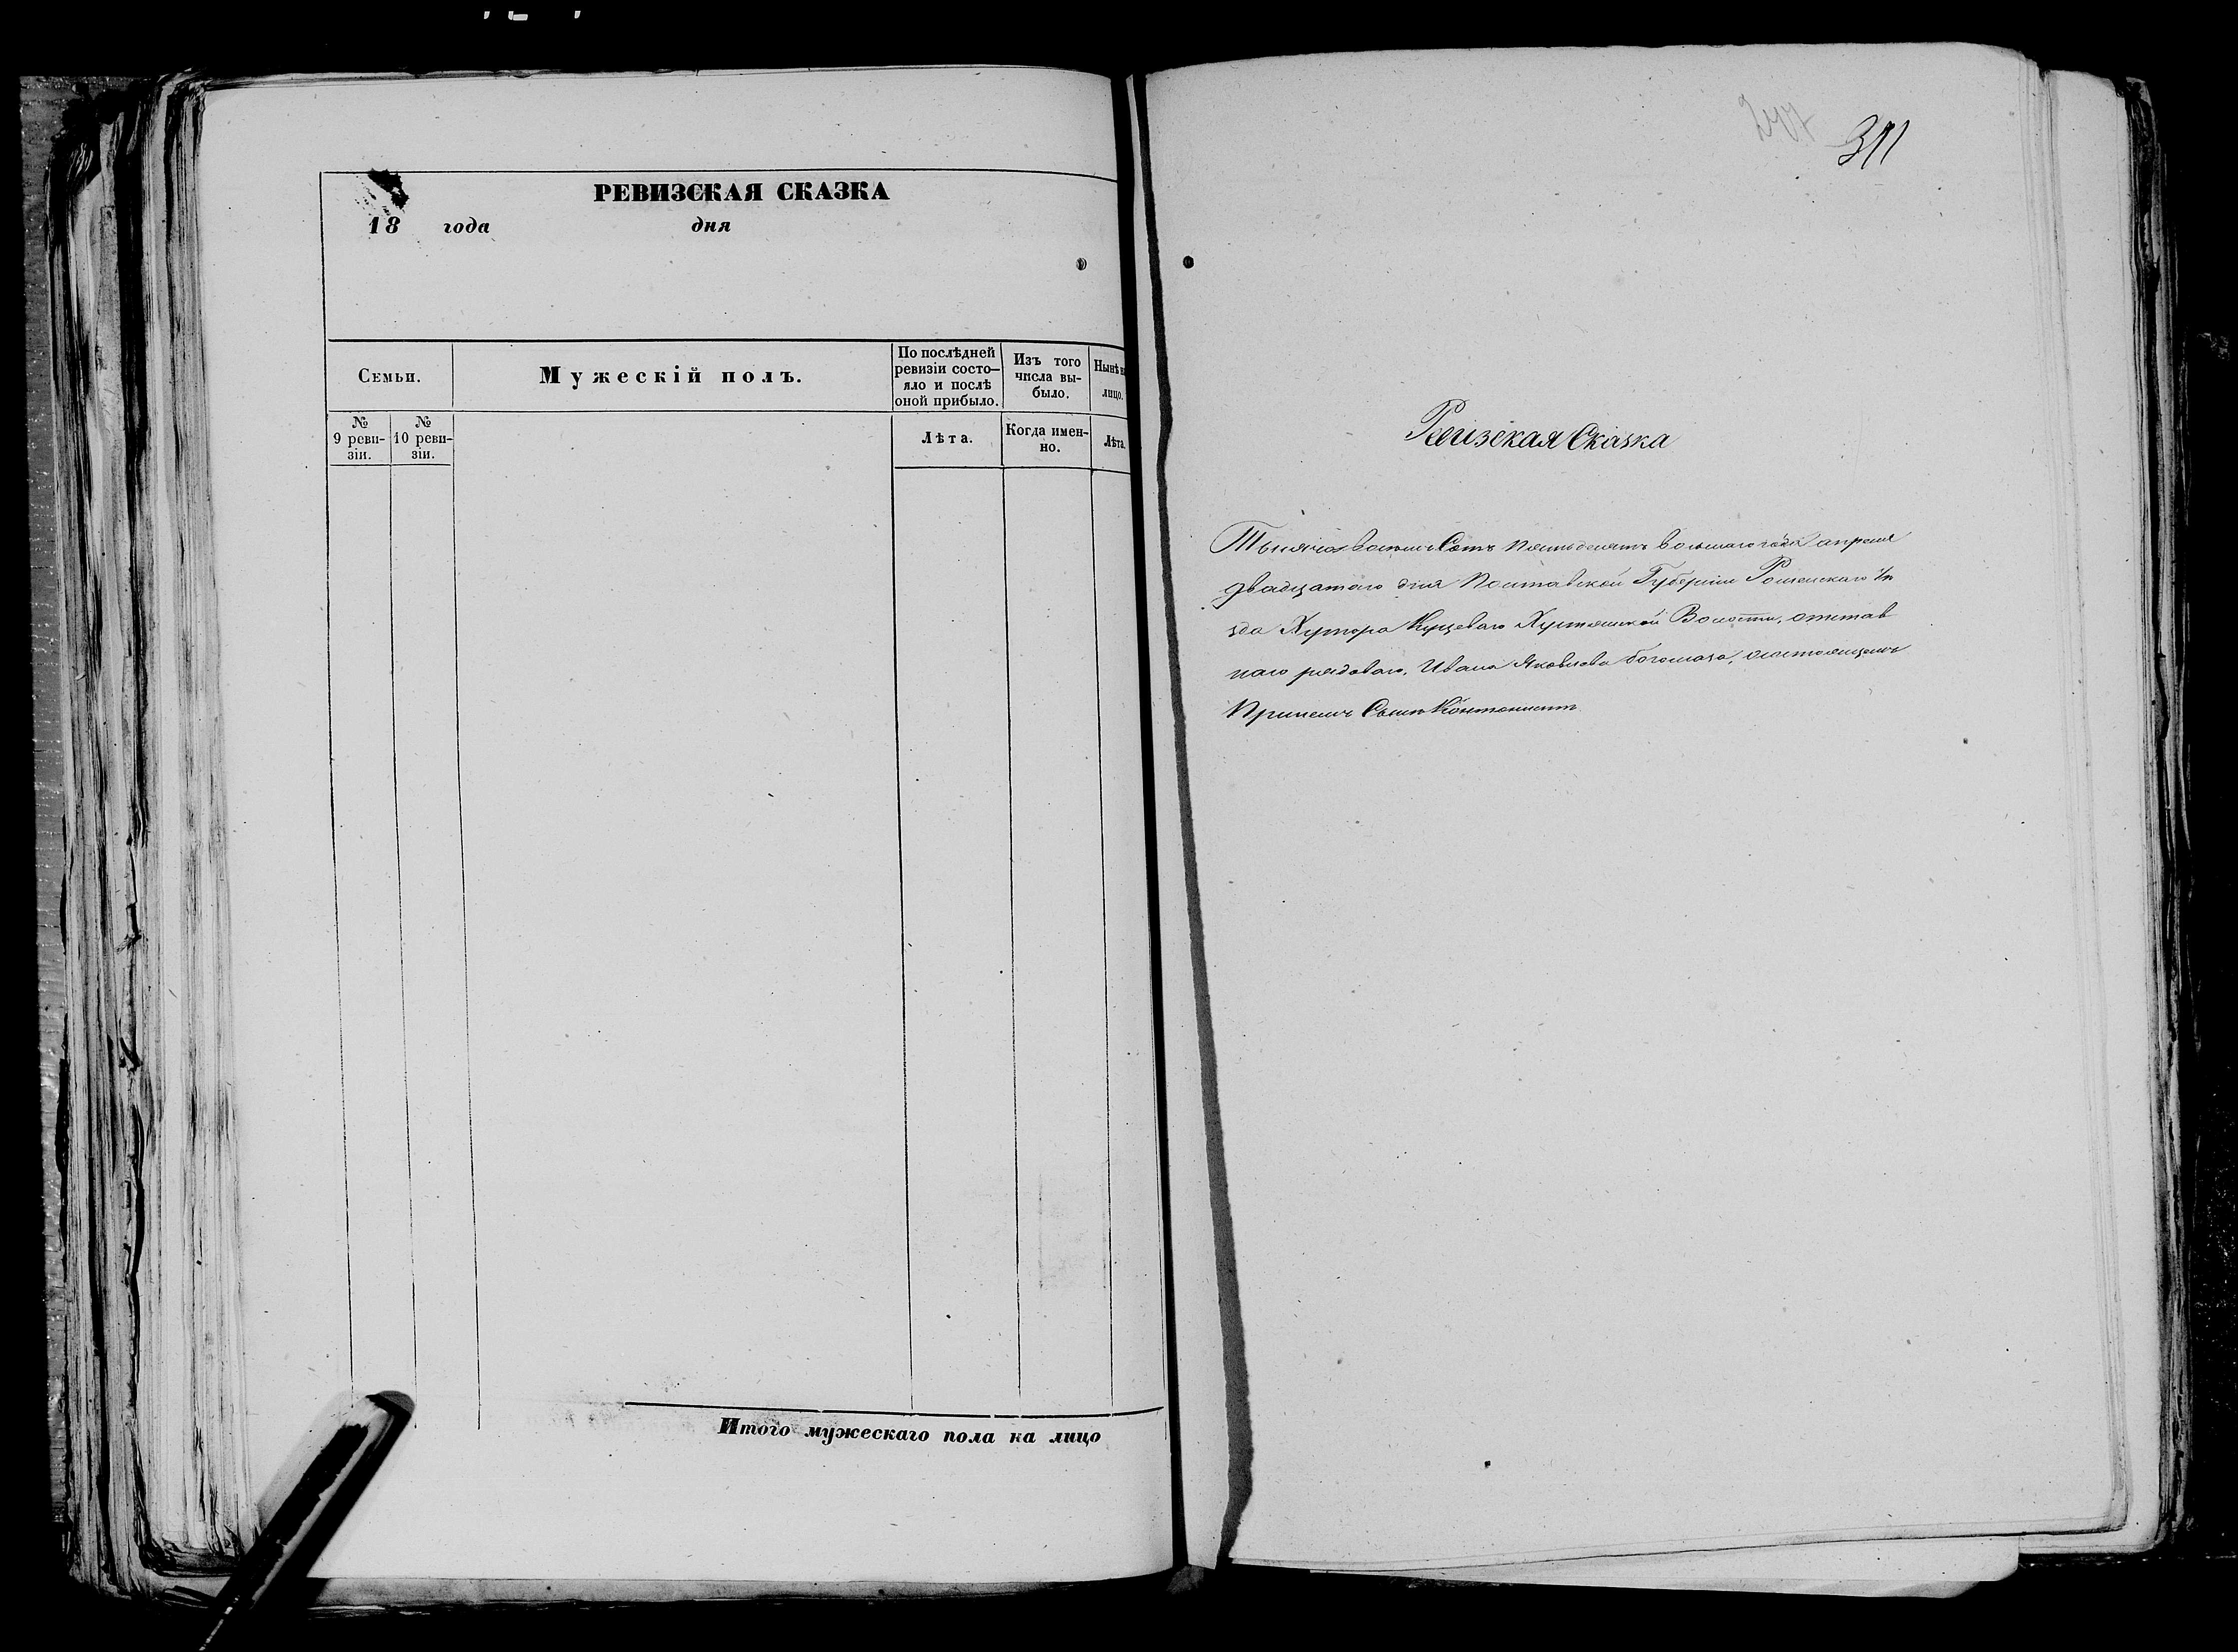 РЕВИЗСКАЯ СКАЗКА
18 года дня
Семьи.
Мужескій полъ.
По послѣдней
ревизіи состо-
яло и послѣ
оной прибыло.
Изъ того
числа вы-
было.
Нынѣ на
лицо.
№
9 реви-
зіи.
№
10 реви-
зіи.
Лѣта.
Когда имен-
но.
Лѣта.
Итого мужескаго пола на лицо
311
Ревизская Сказка
Тысяча восемь Сотъ пятьдесятъ восьмаго года апреля
двадцатаго дня Полтавской Губерніи Роменскаго уѣ
зда Хутора Волости, отстав
наго рядоваго, Ивана Яковлева
Сынъ Кантонистъ